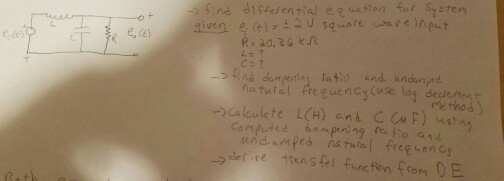 → find differential equation for system
given: e₁(t) = ±2V square wave input
R = 20.36 kΩ
L = ?
C = ?
→ find dampening ratio and undamped
natural frequency (use log decrement
method)
→ calculate L(H) and C (uF) using
computed dampening ratio and
undamped natural frequency
→ derive transfer function from DE
L
C
R
e₁(t)
e₀(t)
+
Both